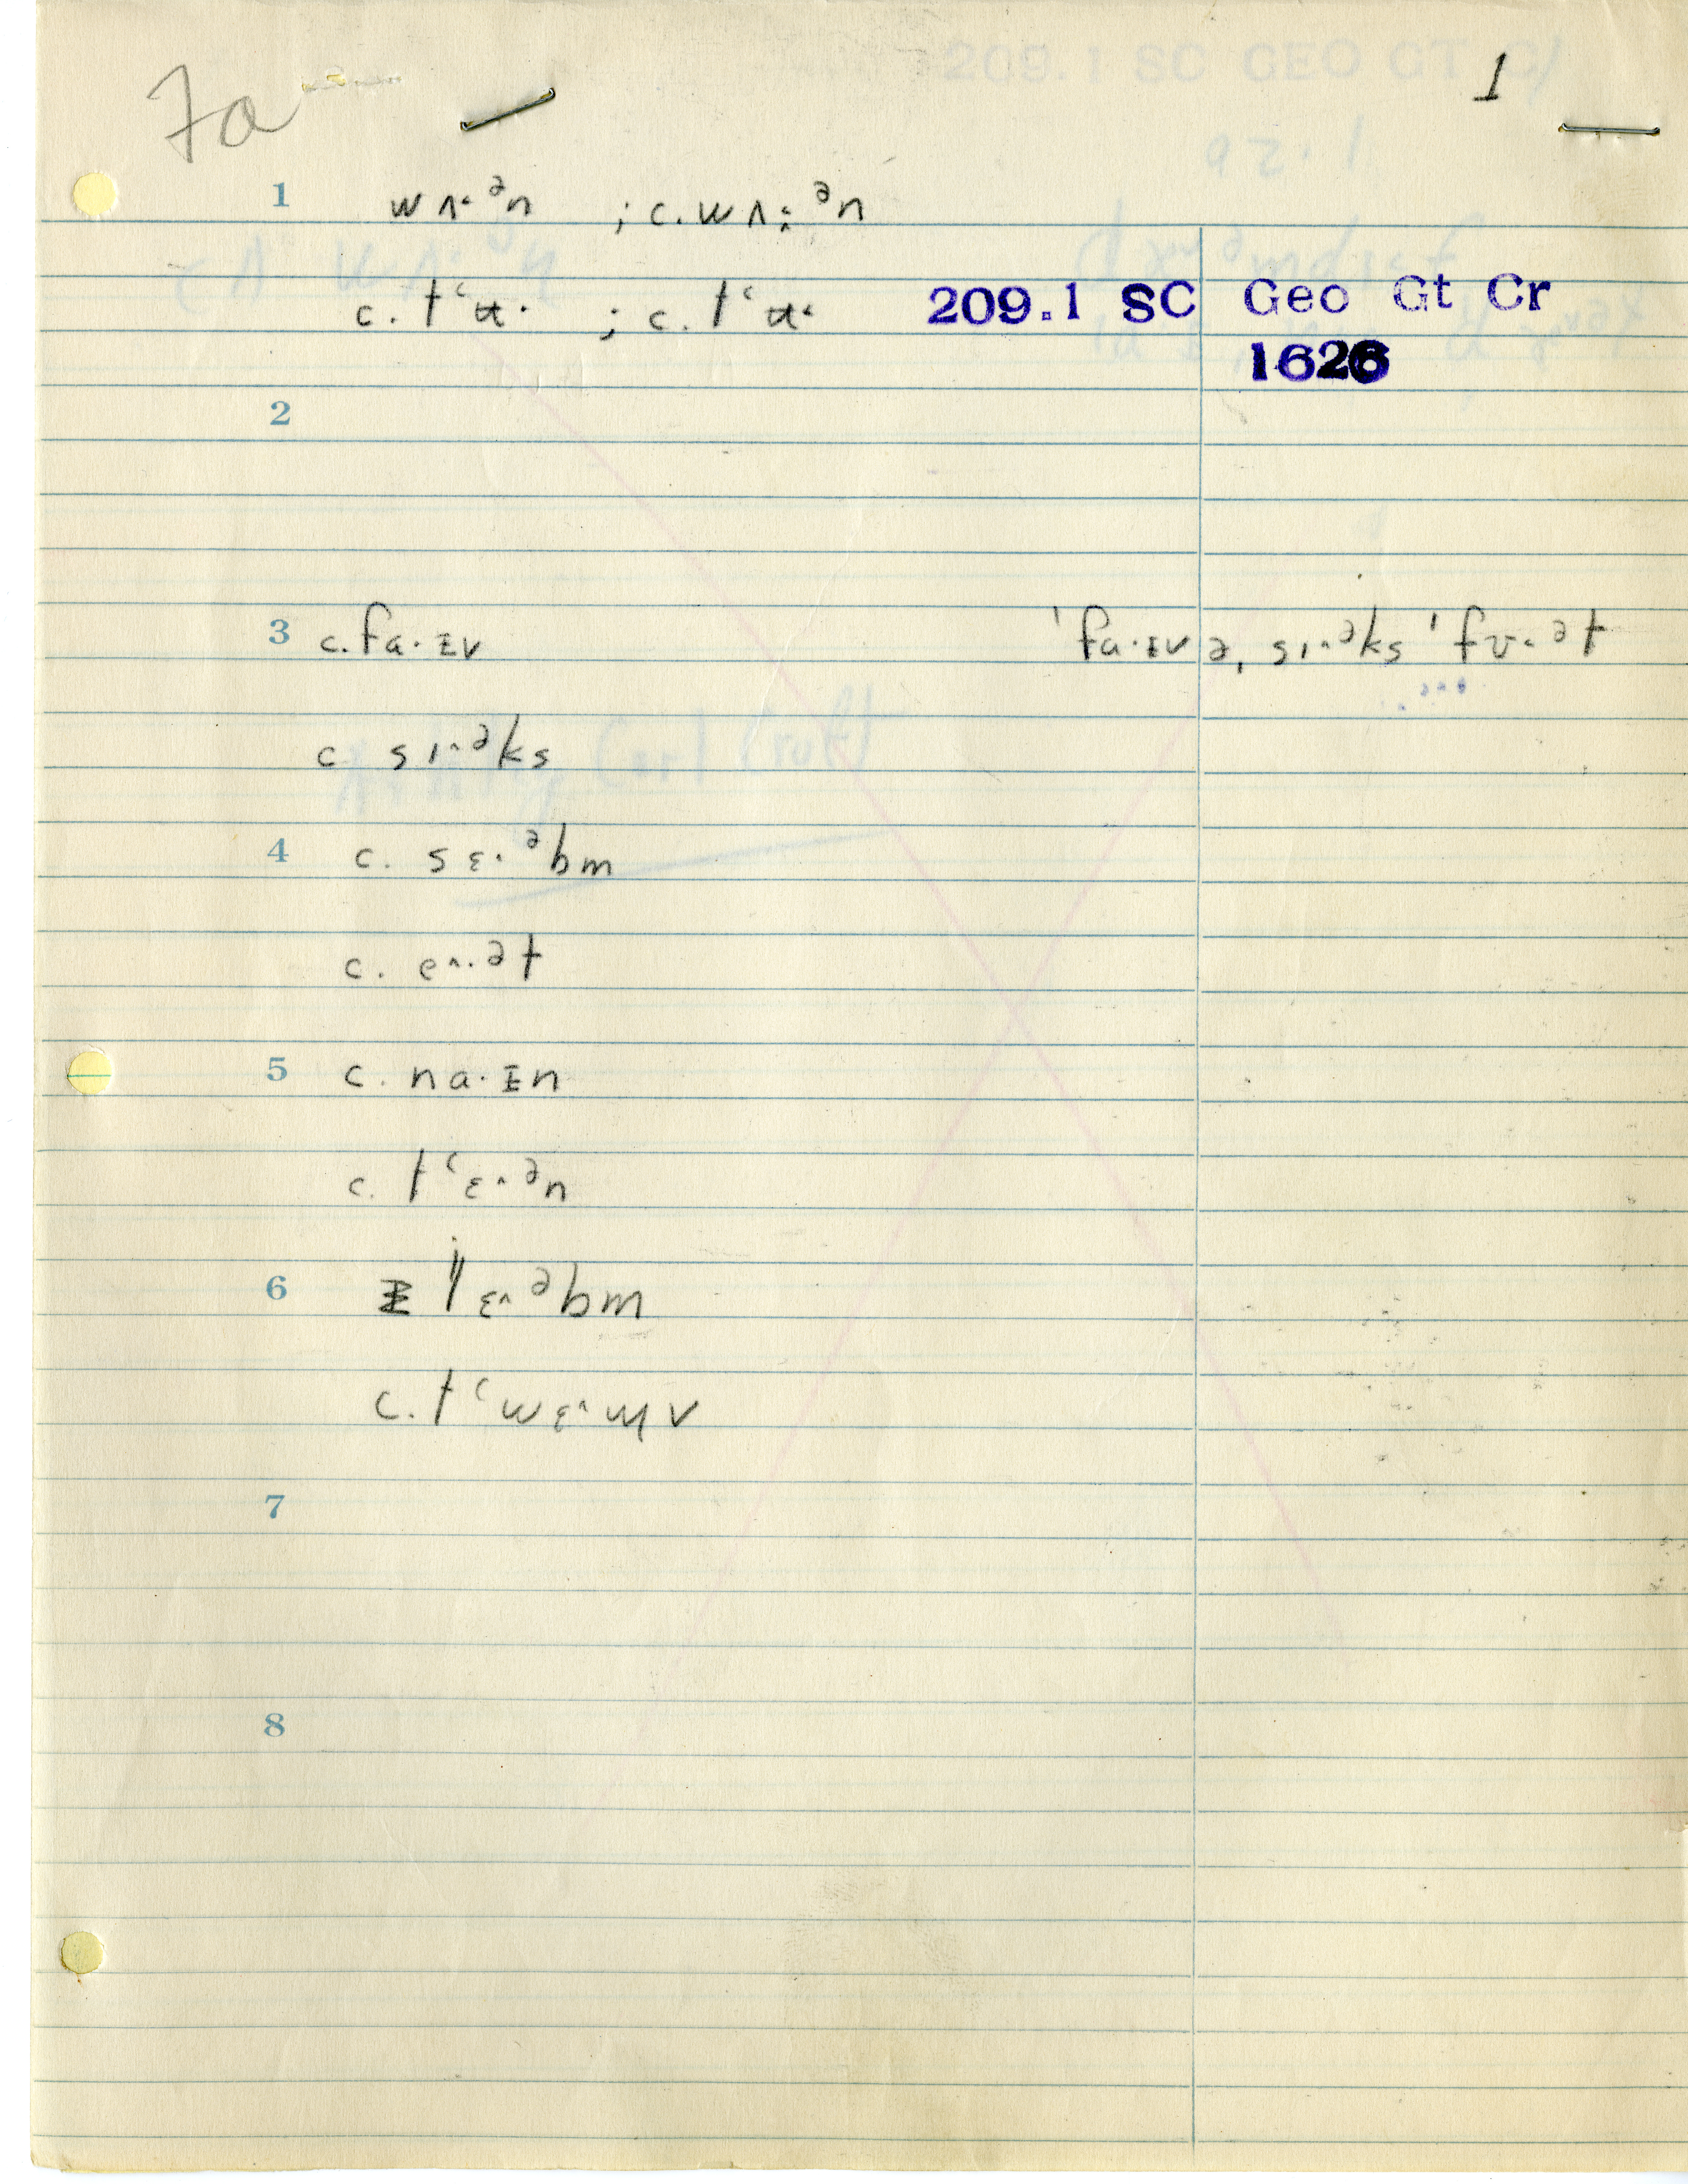 7a 1
1 wʌ˔ᵊn ; c. wʌ:ᵊn
c. tʻʉ· ; c. tʻʉ˔ 209.1 SC Geo Gt Cr
1626
2
3 c. fa·ɪv ˈfa·ɪvə, sɪ˔ᵊks ˈfʊ˔ət
c sɪ˔ᵊks
4 c. sɛ·ᵊbm
c. e˔ət
5 c. na·ɪn
c. tʻɛ˔ᵊn
6 lɛ˔ᵊbm
c. tʻwɛ˔ɱv
7
8